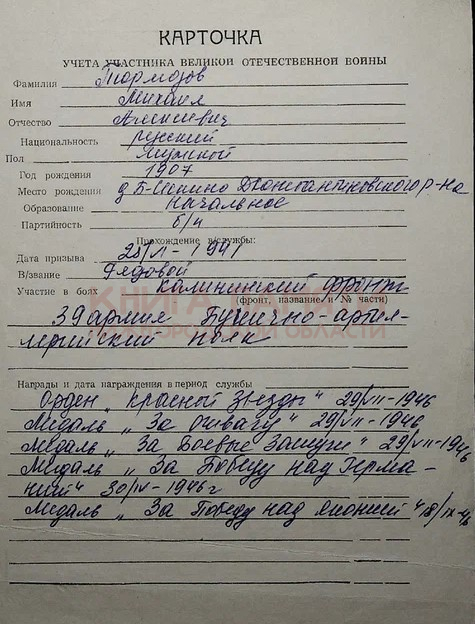 КАРТОЧКА
УЧЕТА УЧАСТНИКА ВЕЛИКОЙ ОТЕЧЕСТВЕННОЙ ВОЙНЫ
Фамилия Тормозов
Имя Михаил
Отчество Алексеевич
Национальность русский
Пол Мужской
Год рождения 1907
Место рождения д Б-Югкино Д.Константиновского р-на
Образование Начальное
Партийность б/п
Прохождение в/службы:
Дата призыва 1941
В/звание Рядовой
Участие в боях Калининский фронт
(фронт, название и № части)
39 армия Пушечно-артил-
лерийский полк
Награды и дата награждения в период службы
Орден „Красной Звезды" 29/VII-1946
Медаль „За Отвагу" 29/VII-1946
Медаль „За Боевые Заслуги" 29/VII-1946
Медаль „За Победу над Герма-
нией" 30/IV-1946г
Медаль „За Победу над Японией" 18/IX-46